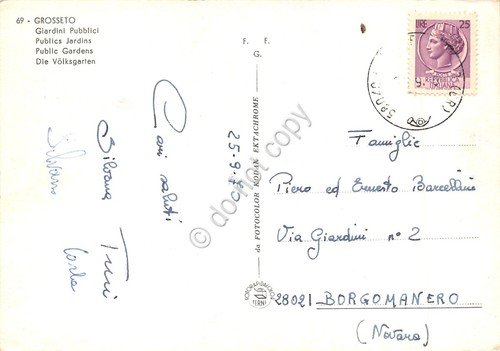 69 - GROSSETO
Giardini Pubblici
Publics Jardins
Public Gardens
Die Völksgarten
F. F.
G.
LIRE 25
REPUBBLICA
ITALIANA
58020
Cari saluti
Silvana
Silvano
Carla
25-9-
da FOTOCOLOR KODAK EKTACHROME
Famiglie
Piero ed Ernesto Barcellini
Via Giardini n° 2
28021 BORGOMANERO
(Novara)
TERNI
© do not copy